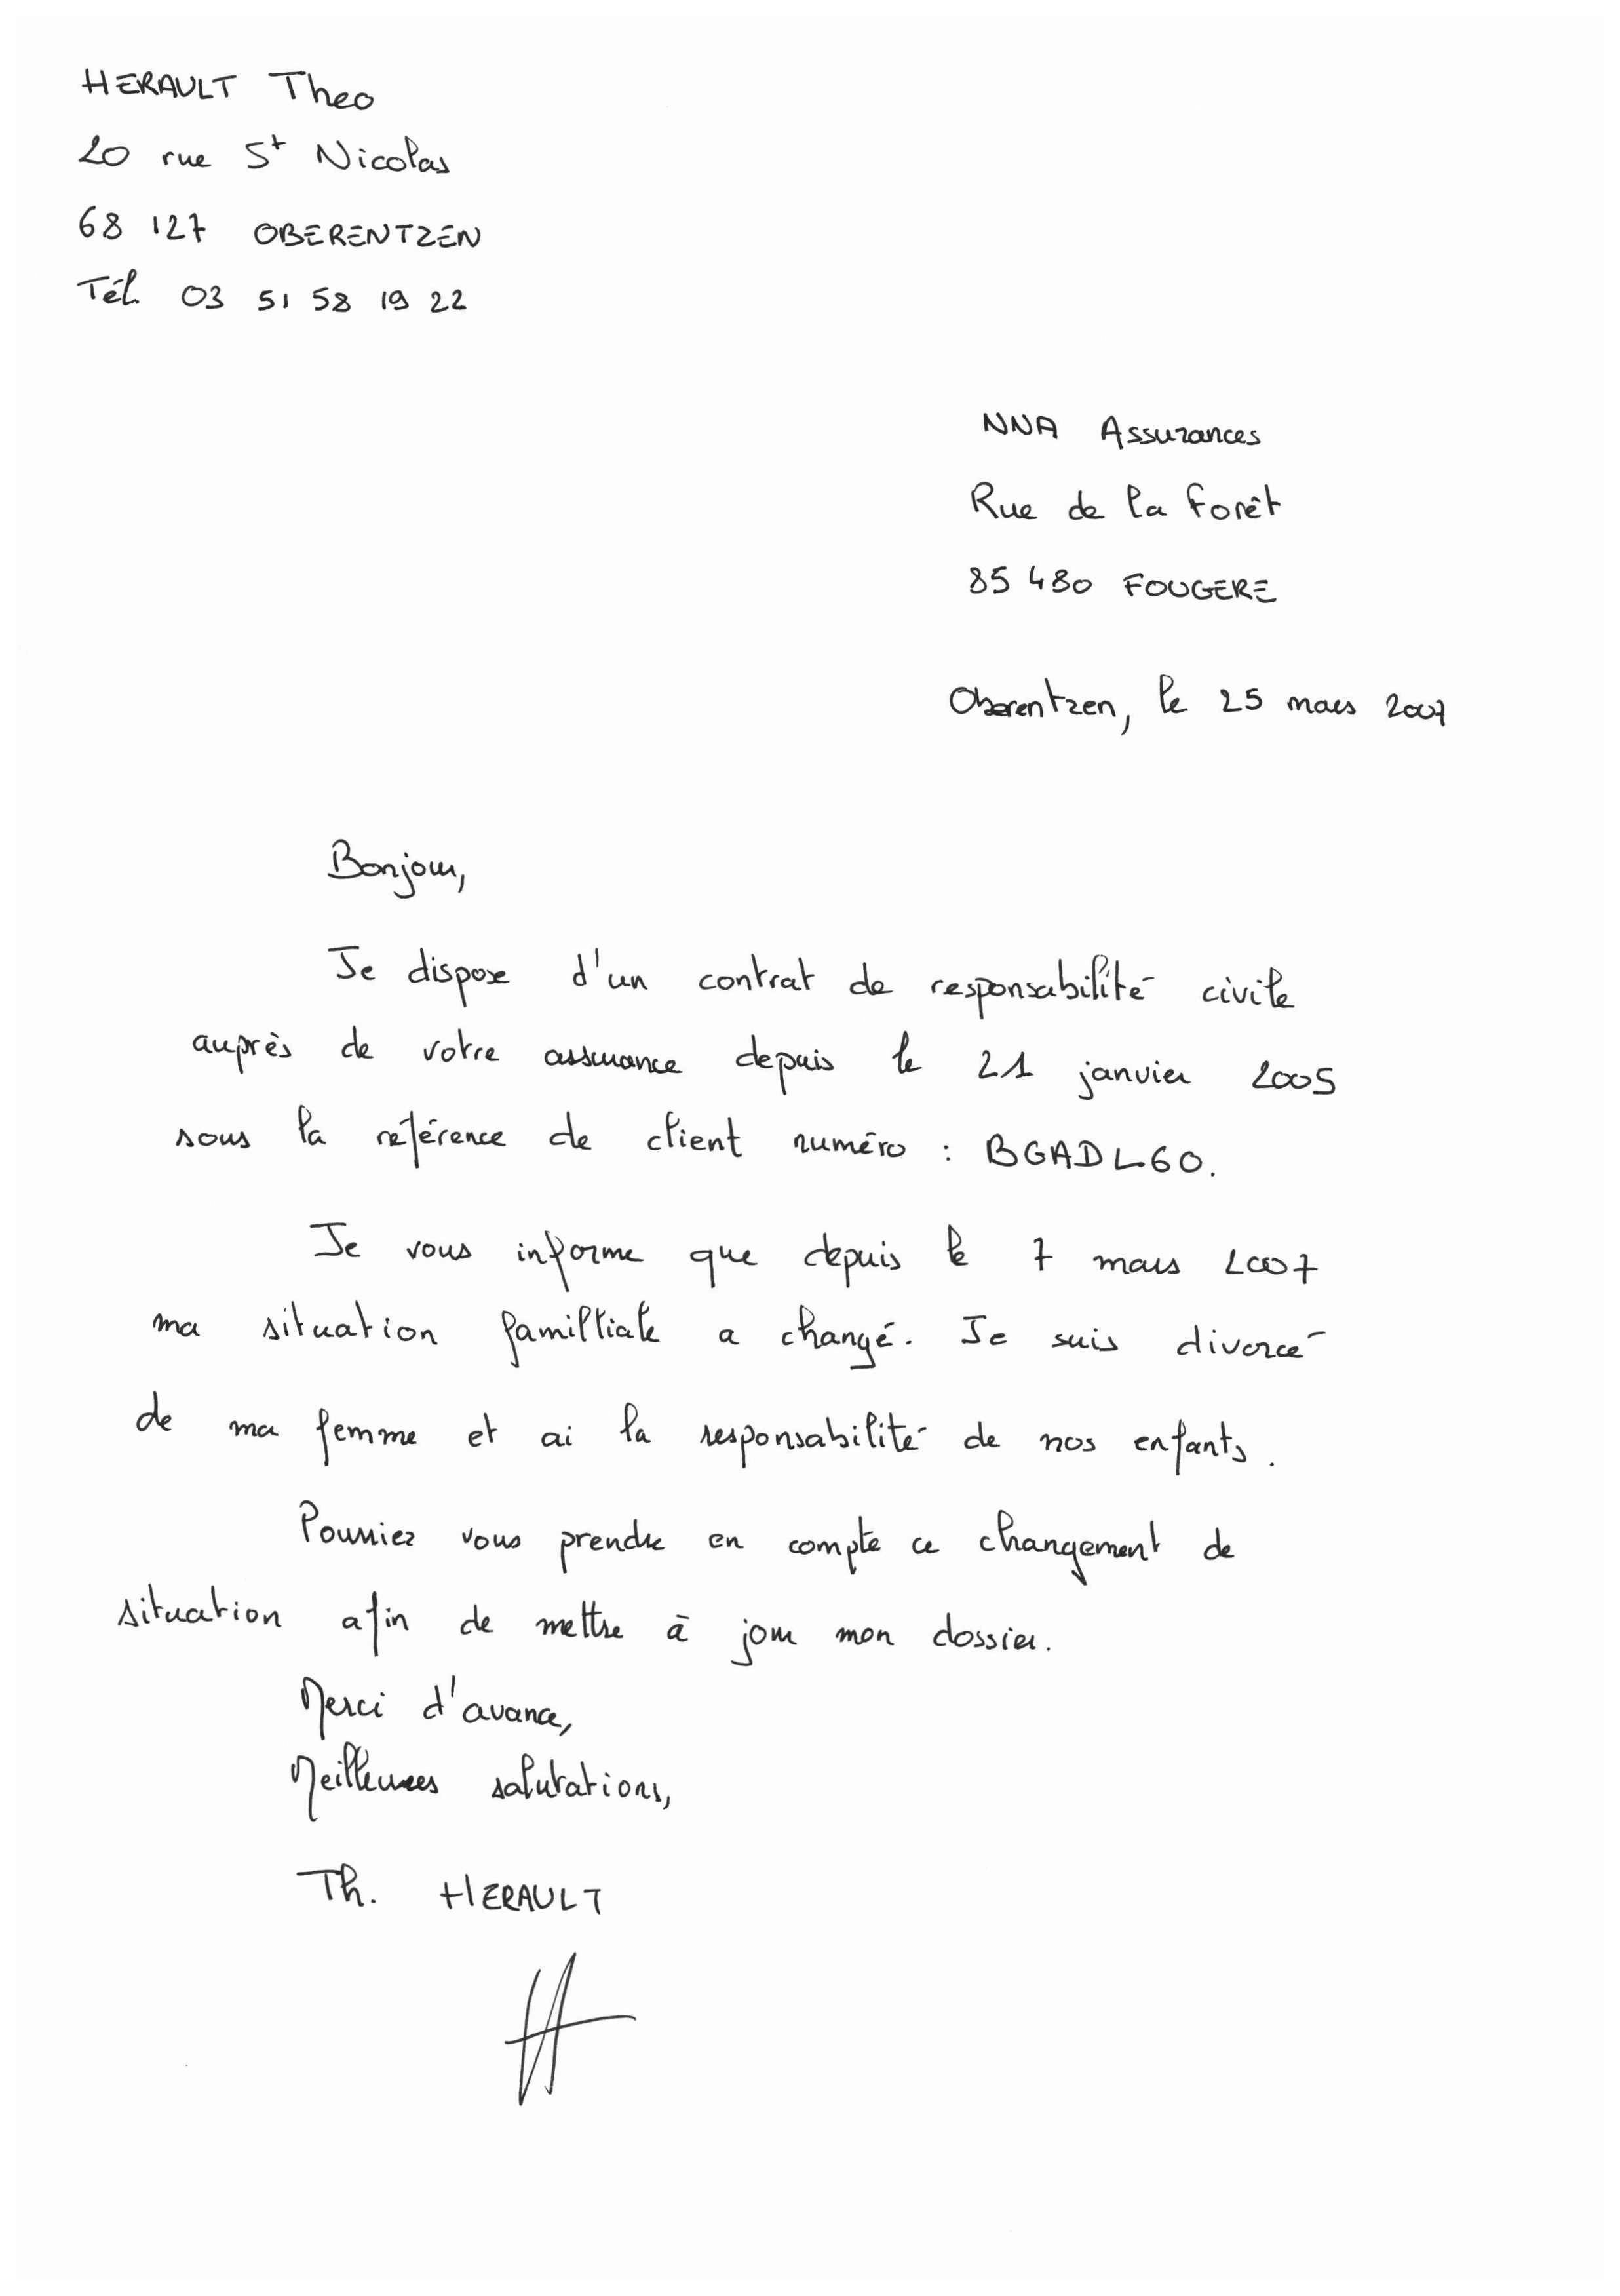 HERAULT Theo
20 rue St Nicolas
68 127 OBERENTZEN
Tél. 03 51 58 19 22
NNA Assurances
Rue de la Forêt
85 480 FOUGERE
Oberentzen, le 25 mars 2007
Bonjour,
Je dispose d'un contrat de responsabilité civile
auprès de votre assurance depuis le 21 janvier 2005
sous la référence de client numéro : BGADL60.
Je vous informe que depuis le 7 mars 2007
ma situation familliale a changé. Je suis divorcé
de ma femme et ai la responsabilité de nos enfants.
Pourriez vous prendre en compte ce changement de
situation afin de mettre à jour mon dossier.
Merci d'avance,
Meilleures salutations,
Th. HERAULT